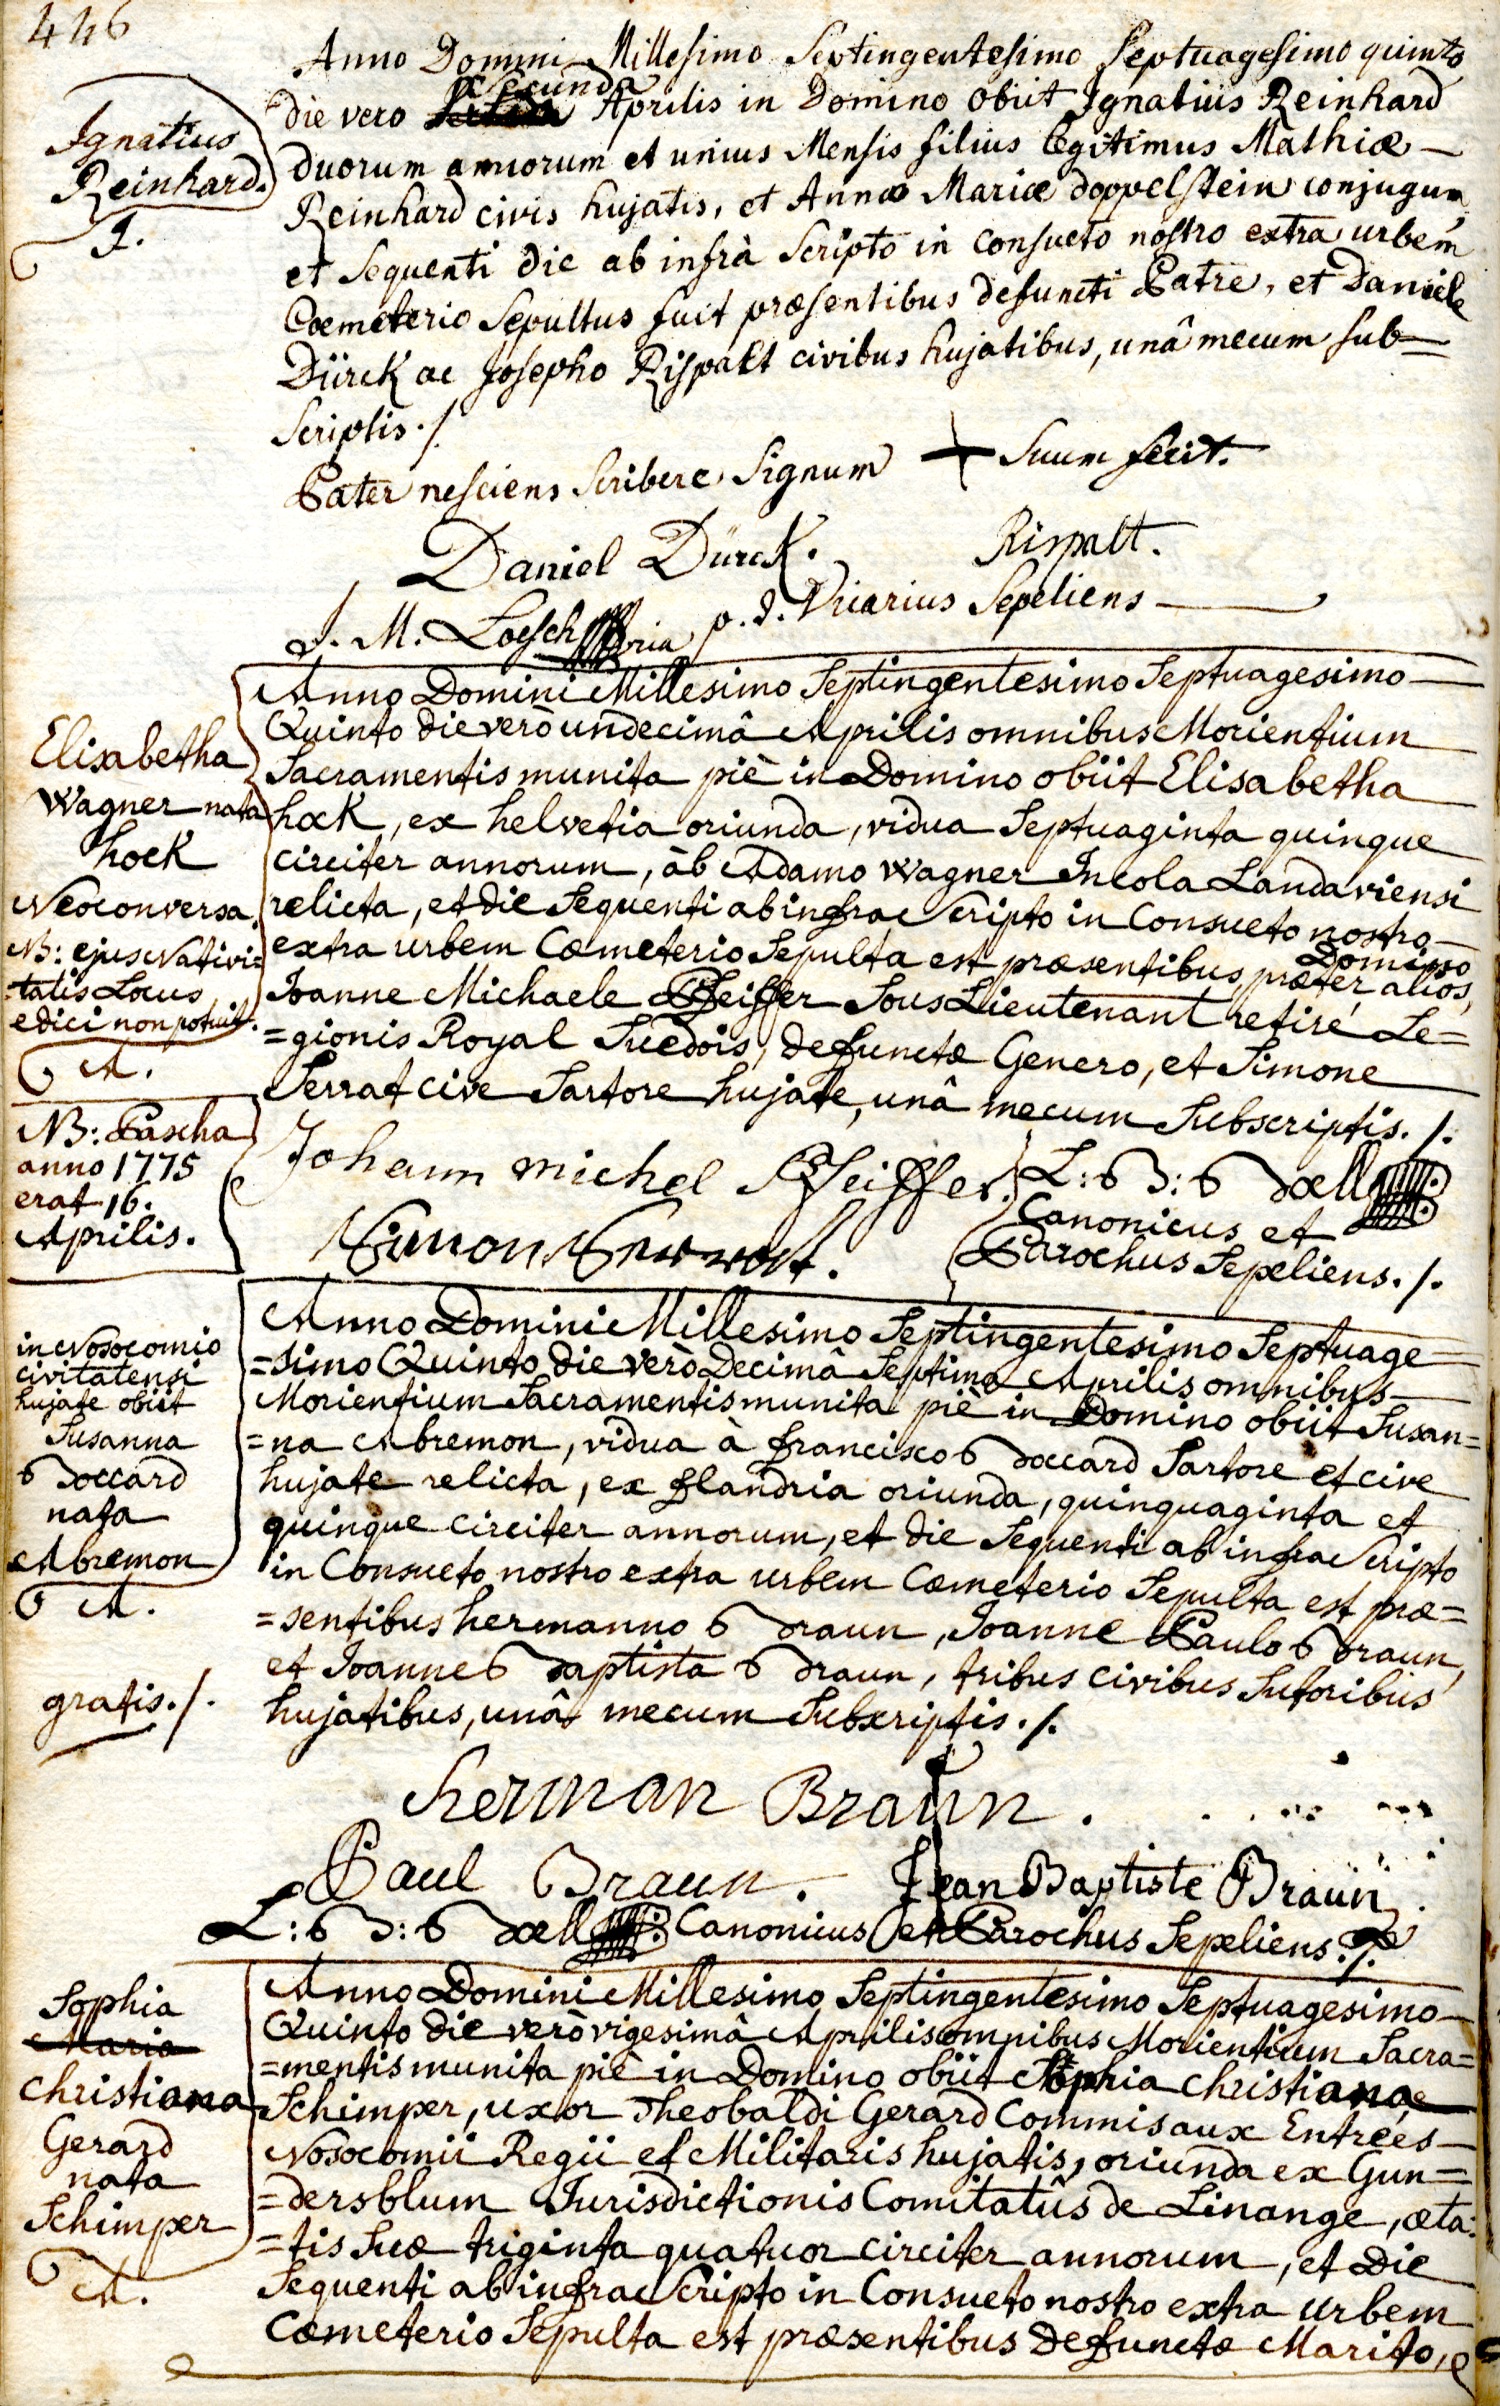 446
Ignatius
Reinhard.
I.
Anno Domini Millesimo Septingentesimo Septuagesimo quinto
secunda
die vero Aprilis in Domino obiit Ignatius Reinhard
duorum annorum et unius Mensis filius legitimus Mathiæ
Reinhard civis hujatis, et Annæ Mariæ doppelstein conjugum,
et sequenti die ab infrà scripto in consueto nostro extra urbem
Cœmeterio sepultus fuit præsentibus defuncti Patre, et Daniele
Dürck ac Josepho Rispalt civibus hujatibus, unâ mecum sub=
scriptis ./
Pater nesciens scribere signum + suum fecit.
Daniel Dürck. Rispalt.
J. M. Loesch p. d. Vicarius Sepeliens
Elisabetha
Wagner nata
hoek
Neoconversa
NB: ejus Nativi=
=tatis Locus
edici non potuit.
A.
Anno Domini Millesimo Septingentesimo Septuagesimo
Quinto die verò undecimâ Aprilis omnibus Morientium
Sacramentis munita piè in Domino obiit Elisabetha
hoek, ex helvetia oriunda, vidua Septuaginta quinque
circiter annorum, àb Adamo Wagner Incola Landaviensi
relicta, et die Sequenti ab infrascripto in Consueto nostro
extra urbem Cœmeterio Sepulta est præsentibus, præter alios,
Domino
Joanne Michaele Pfeiffer Sous Lieutenant retiré Le=
=gionis Royal Suedois, defunctæ Genero, et Simone
Serrat cive Sartore hujate, unâ mecum Subscriptis ./.
NB: Pascha
anno 1775
erat 16.
Aprilis.
Johann michel Pfeiffer.
Simon Serrat.
L: B: Boell
Canonicus et
Parochus Sepeliens ./.
in Nosocomio
civitatensi
hujate obiit
Susanna
Boccard
nata
Abremon
A.
gratis ./.
Anno Domini Millesimo Septingentesimo Septuage=
=simo Quinto die verò Decimâ Septima Aprilis omnibus
Morientium Sacramentis munita piè in Domino obiit Susan=
=na Abremon, vidua à francisco Boccard Sartore et cive
hujate relicta, ex flandria oriunda, quinquaginta et
quinque circiter annorum, et die Sequenti ab infrascripto
in Consueto nostro extra urbem Cœmeterio Sepulta est præ=
=sentibus hermanno Braun, Joanne Paulo Braun,
et Joanne Baptista Braun, tribus civibus Sutoribus
hujatibus, unâ mecum Subscriptis ./.
herman Braun.
Paul Braun. Jean Baptiste Braun
L: B: Boell Canonicus et Parochus Sepeliens ./.
Sophia
Maria
Christiana
Gerard
nata
Schimper
A.
Anno Domini Millesimo Septingentesimo Septuagesimo
Quinto die verò vigesimâ Aprilis omnibus Morientium Sacra=
=mentis munita piè in Domino obiit Sophia Christiana
Schimper, uxor Theobaldi Gerard Commis aux Entrées
Nosocomii Regii et Militaris hujatis, oriunda ex Gun=
=dersblum Jurisdictionis Comitatûs de Linange, æta=
=tis suæ triginta quatuor circiter annorum, et die
Sequenti ab infrascripto in Consueto nostro extra urbem
Cœmeterio Sepulta est præsentibus defunctæ Marito,